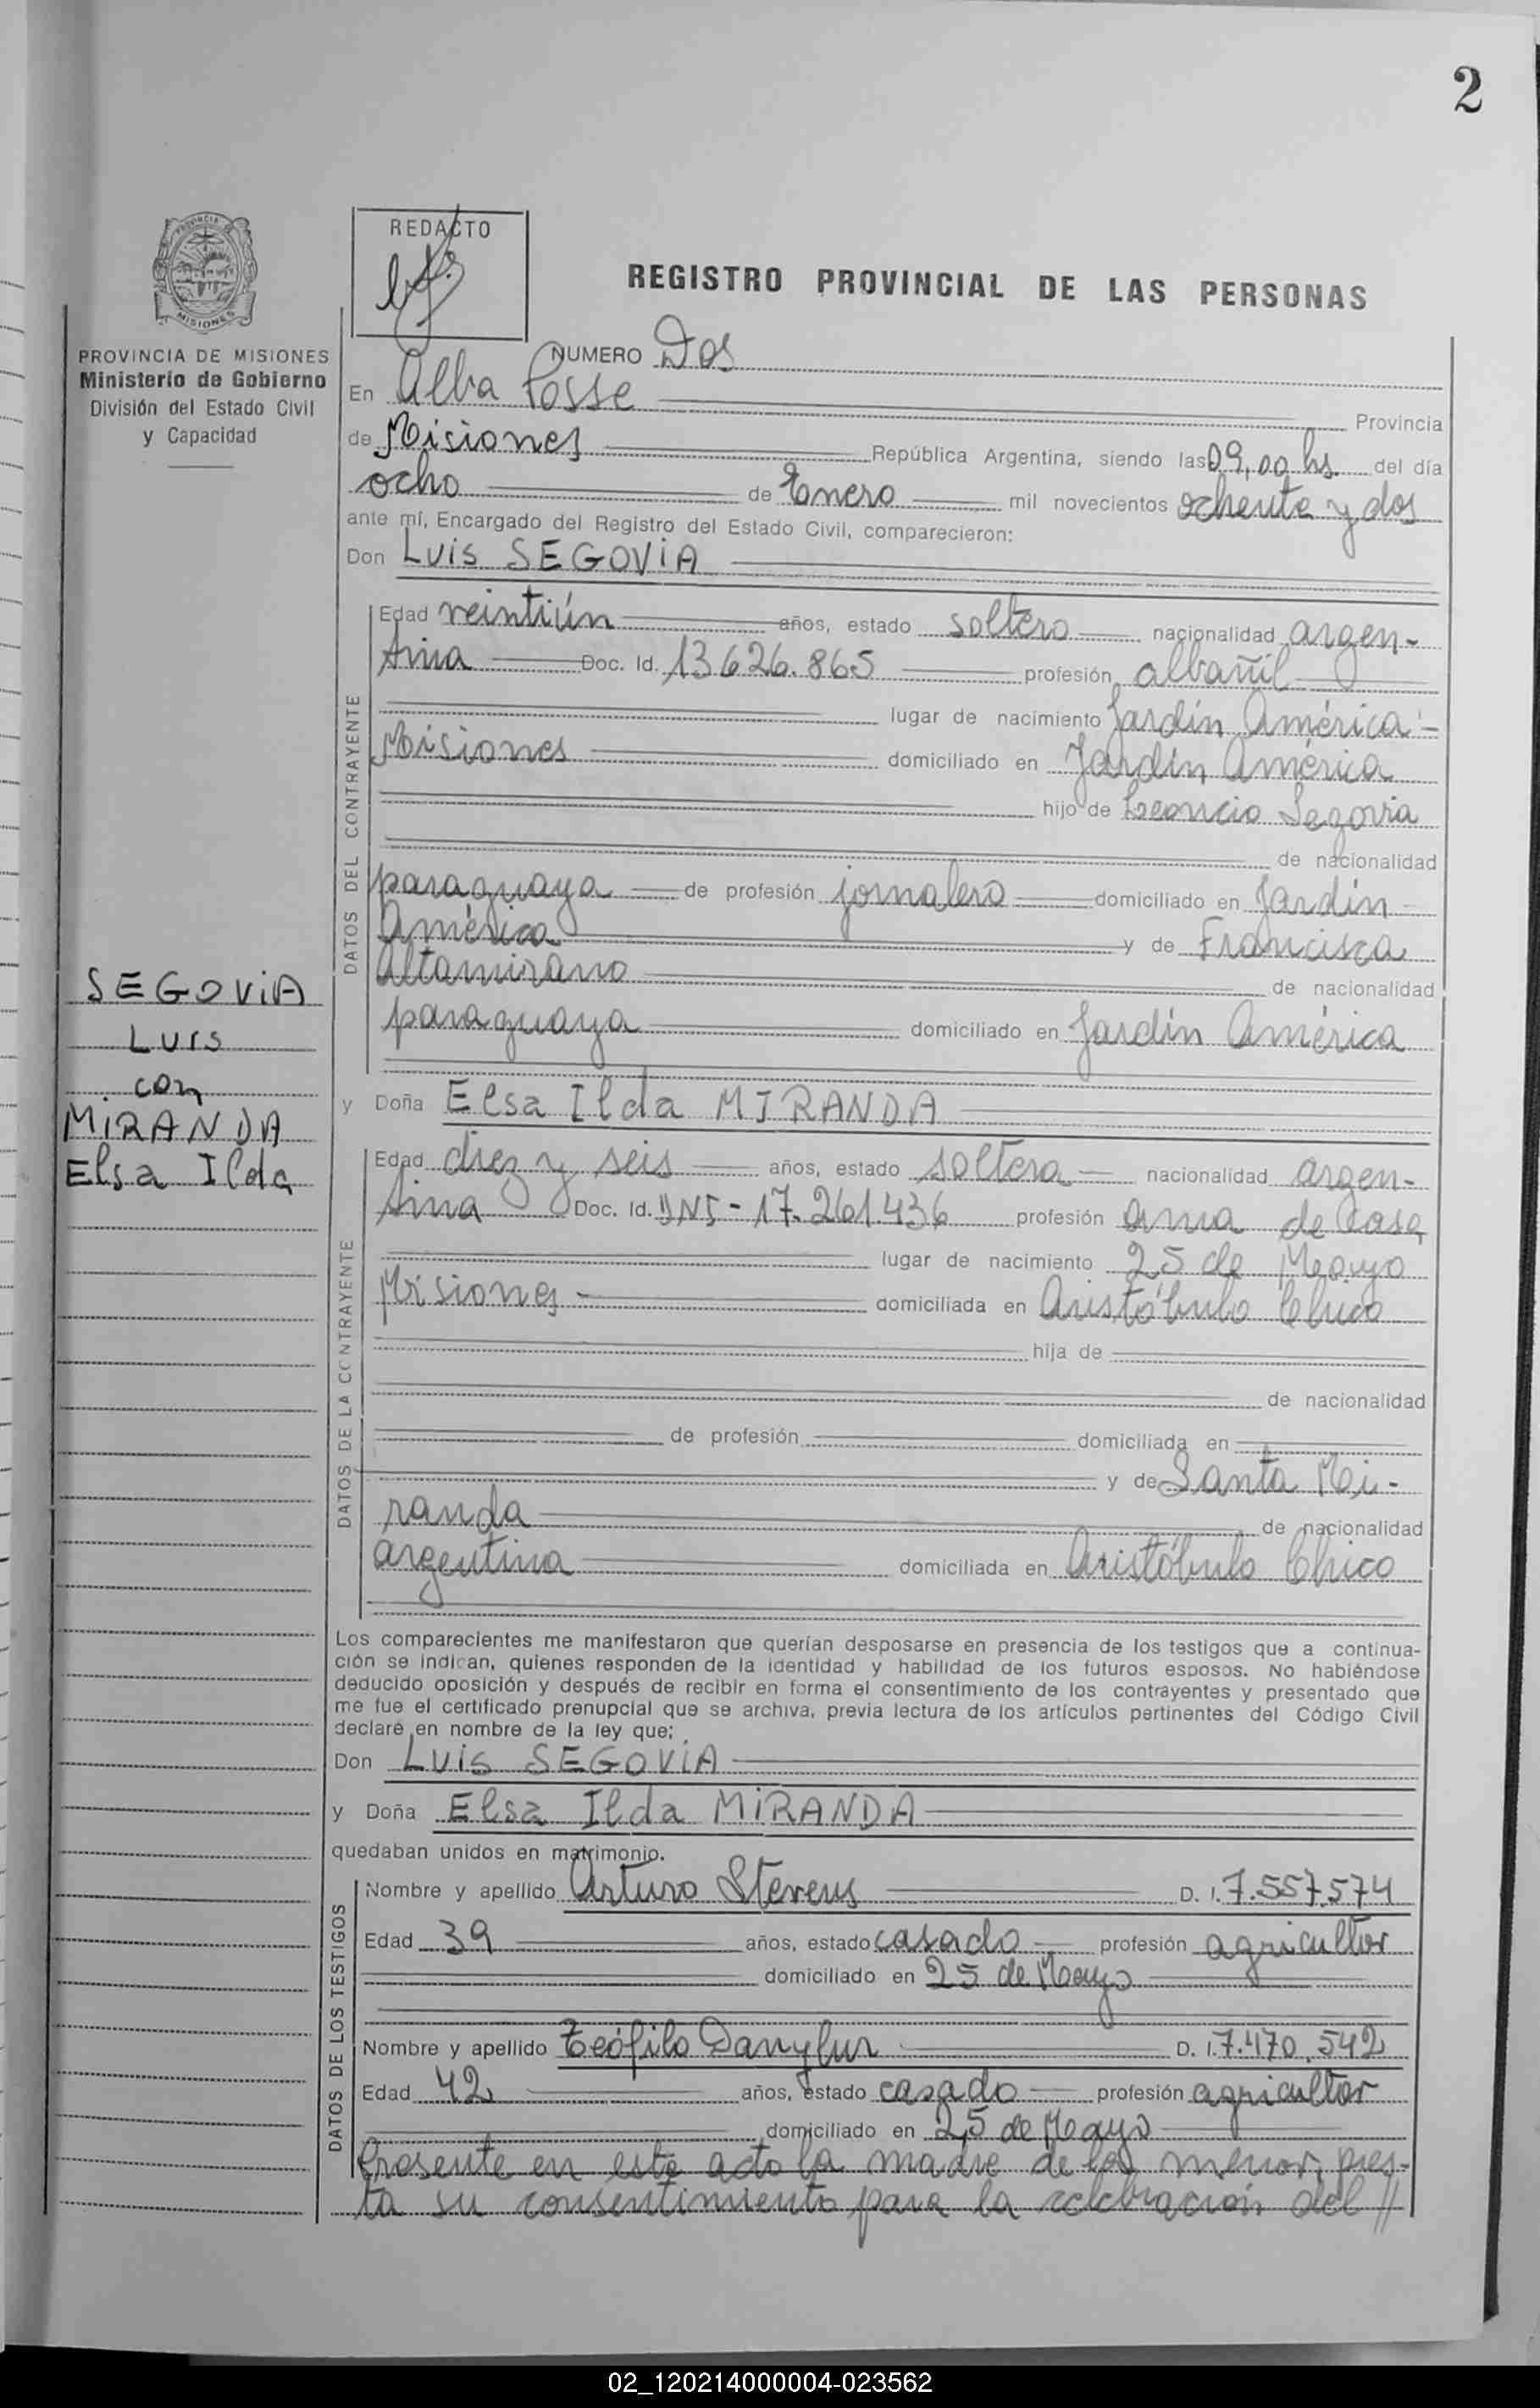 2
REDACTO
REGISTRO PROVINCIAL DE LAS PERSONAS
MISIONES
PROVINCIA DE MISIONES
Ministerio de Gobierno
División del Estado Civil
y Capacidad
SEGOVIA
Luis
con
MIRANDA
Elsa Ilda
NUMERO Dos
En Alba Posse Provincia
de Misiones República Argentina, siendo las 09,00 hs. del día
ocho de Enero mil novecientos ochenta y dos
ante mí, Encargado del Registro del Estado Civil, comparecieron:
Don Luis SEGOVIA
DATOS DEL CONTRAYENTE
Edad veintiún años, estado soltero nacionalidad argen-
tina Doc. Id. 13.626.865 profesión albañil
lugar de nacimiento Jardín América -
Misiones domiciliado en Jardín América
hijo de Leoncio Segovia
de nacionalidad
paraguaya de profesión jornalero domiciliado en Jardín
América y de Francisca
Altamirano de nacionalidad
paraguaya domiciliado en Jardín América
y Doña Elsa Ilda MIRANDA
DATOS DE LA CONTRAYENTE
Edad diez y seis años, estado soltera nacionalidad argen-
tina Doc. Id. DNI - 17.261.436 profesión ama de casa
lugar de nacimiento 25 de Mayo
Misiones domiciliada en Aristóbulo Chico
hija de
de nacionalidad
de profesión domiciliada en
y de Santa Mi-
randa de nacionalidad
argentina domiciliada en Aristóbulo Chico
Los comparecientes me manifestaron que querían desposarse en presencia de los testigos que a continua-
ción se indican, quienes responden de la identidad y habilidad de los futuros esposos. No habiéndose
deducido oposición y después de recibir en forma el consentimiento de los contrayentes y presentado que
me fue el certificado prenupcial que se archiva, previa lectura de los artículos pertinentes del Código Civil
declaré en nombre de la ley que:
Don Luis SEGOVIA
y Doña Elsa Ilda MIRANDA
quedaban unidos en matrimonio.
DATOS DE LOS TESTIGOS
Nombre y apellido Arturo Stevens D. I. 7.557.574
Edad 39 años, estado casado profesión agricultor
domiciliado en 25 de Mayo
Nombre y apellido Teófilo D. I. 7.470.542
Edad 42 años, estado casado profesión agricultor
domiciliado en 25 de Mayo
Presente en este acto la madre de la menor, pres-
ta su consentimiento para la celebración del //
02_120214000004-023562